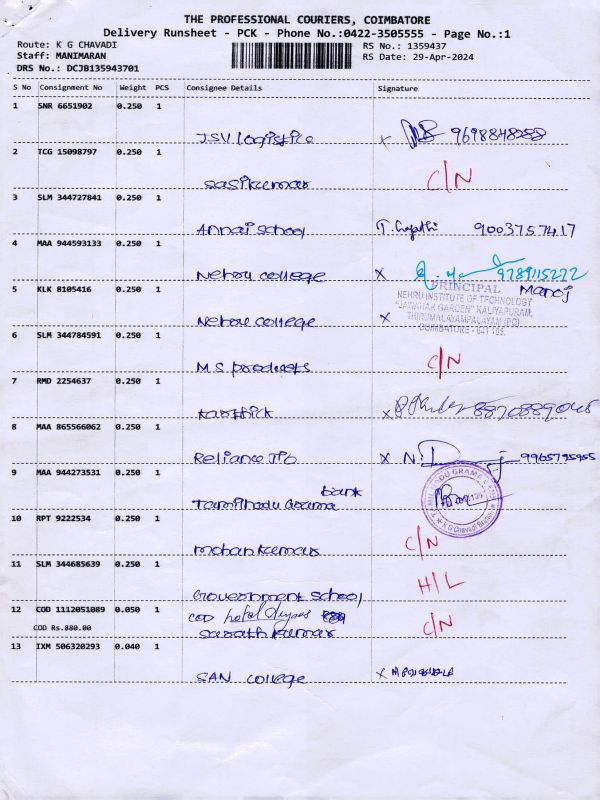 THE PROFESSIONAL COURIERS, COIMBATORE
Delivery Runsheet - PCK - Phone No.:0422-3505555 - Page No.:1
Route: K G CHAVADI
RS No.: 1359437
Staff: MANIMARAN
RS Date: 29-Apr-2024
DRS No.: DCJB135943701
S No Consignment No Weight PCS Consignee Details Signature
1 SNR 6651902 0.250 1
JSV Logistics x 9698848288
2 TCG 15098797 0.250 1
Sasikumar C/N
3 SLM 344727841 0.250 1
Annai School 9003757417
4 MAA 944593133 0.250 1
Nehru college x 9789115272
5 KLK 8105416 0.250 1
PRINCIPAL Manoj
NEHRU INSTITUTE OF TECHNOLOGY
"JAWAHAR GARDEN" KALIYAPURAM,
Nehru college x THIRUMALAYAMPALAYAM (PO),
COIMBATORE - 641 105.
6 SLM 344784591 0.250 1
M.S products C/N
7 RMD 2254637 0.250 1
Karthick x
8 MAA 865566062 0.250 1
Reliance Jio x N.
9 MAA 944273531 0.250 1
bank
Tamilnadu Grama
10 RPT 9222534 0.250 1
Mohan kumar C/N
11 SLM 344685639 0.250 1
Government School H/L
12 COD 1112051089 0.050 1
COD
COD Rs.880.00
Sarath kumar C/N
13 IXM 506320293 0.040 1
SAN college x